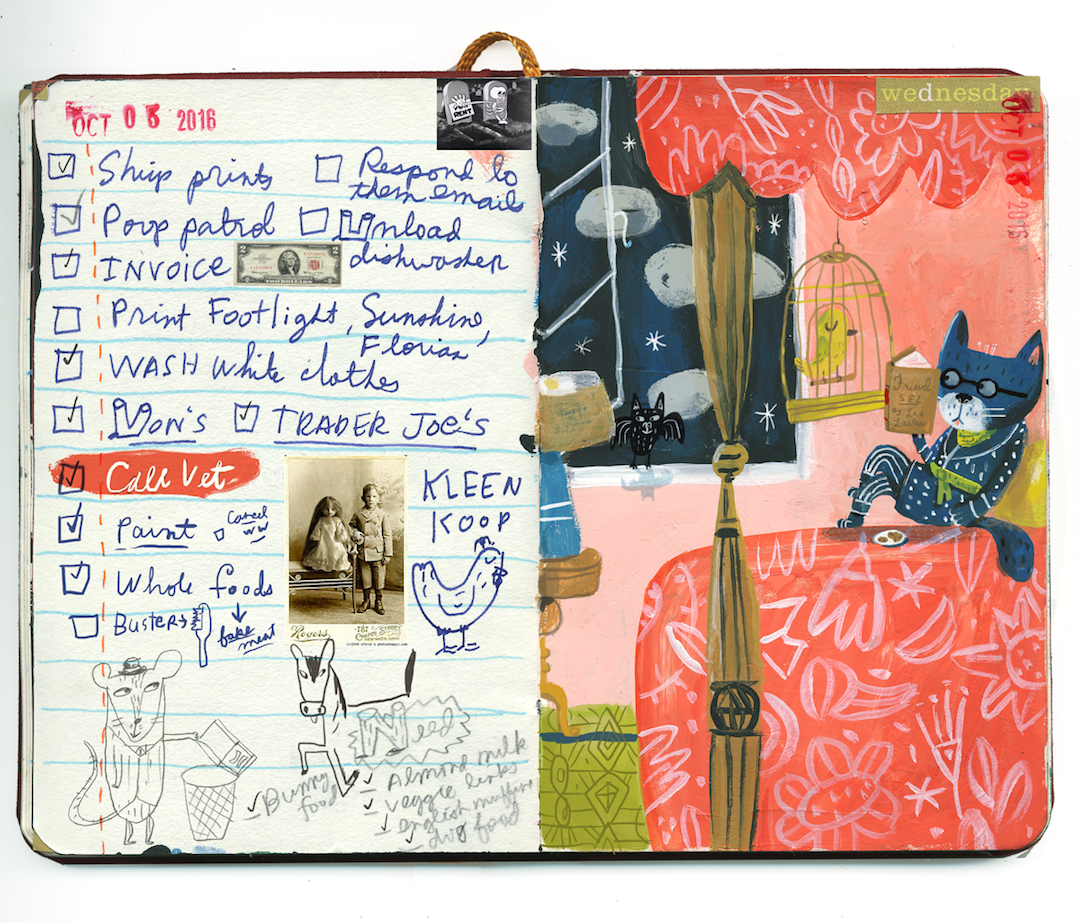 OCT 05 2016
RENT
Ship prints
Respond to
them emails
Poop patrol
Unload
dishwasher
INVOICE
TWO DOLLARS
Print Footlight, Sunshine,
Florian
WASH White clothes
Von's
TRADER JOE'S
Call Vet
Paint
Cancel
WW
Whole foods
Busters
fake
meat
KLEEN
KOOP
Rogers
Need
Almond milk
veggie links
english muffins
Bunny
food
wednesday
OCT 05 2016
Freud